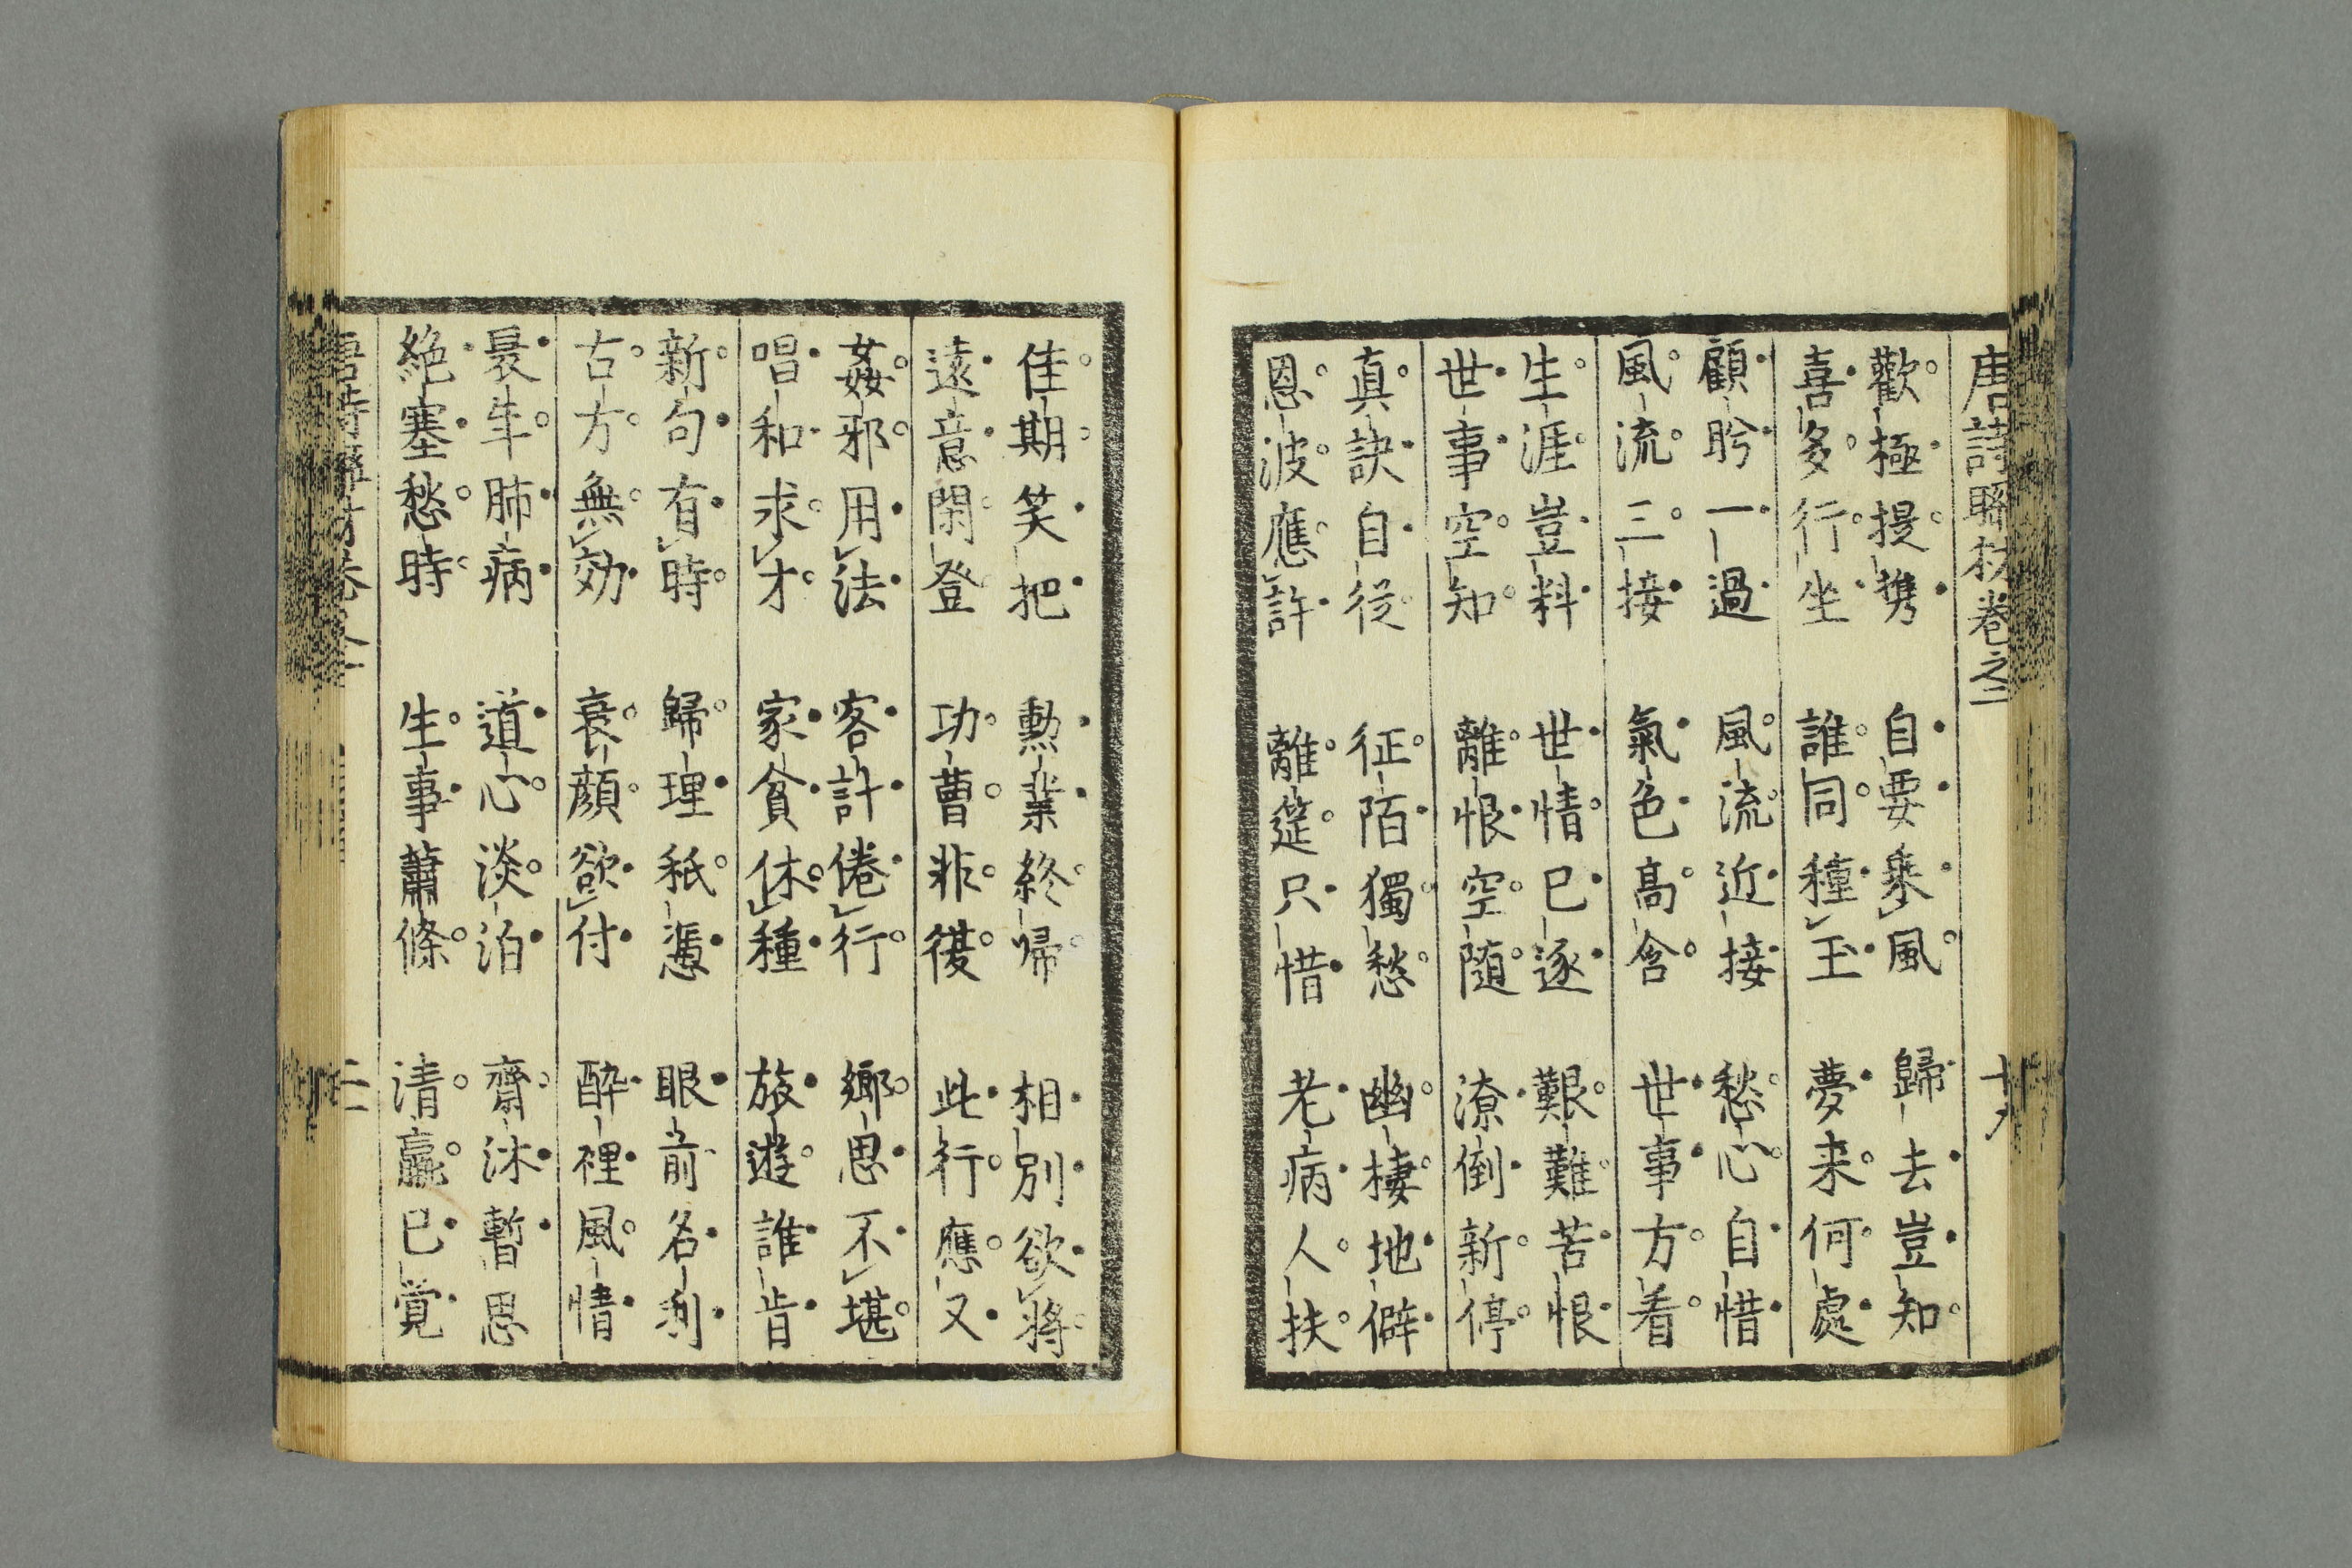 唐詩聯材卷之二 十九
歡極提携 自要乗風 歸去豈知
喜多行坐 誰同種玉 夢来何處
顧盻一過 風流近接 愁心自惜
風流三接 氣色高含 世事方看
生涯豈料 世情已逐 艱難苦恨
世事空知 離恨空随 潦倒新停
真訣自従 征陌獨愁 幽棲地僻
恩波應許 離筵只惜 老病人扶
佳期笑把 勲業終帰 相別欲将
遠意閑登 功曹非復 此行應又
姦邪用法 客許倦行 郷思不堪
唱和求才 家貧休種 放遊誰肯
新句有時 歸理秖憑 眼前名利
古方無効 衰顔欲付 酔裡風情
衰年肺病 道心淡泊 齋沐暫思
絶塞愁時 生事蕭條 清羸已覚